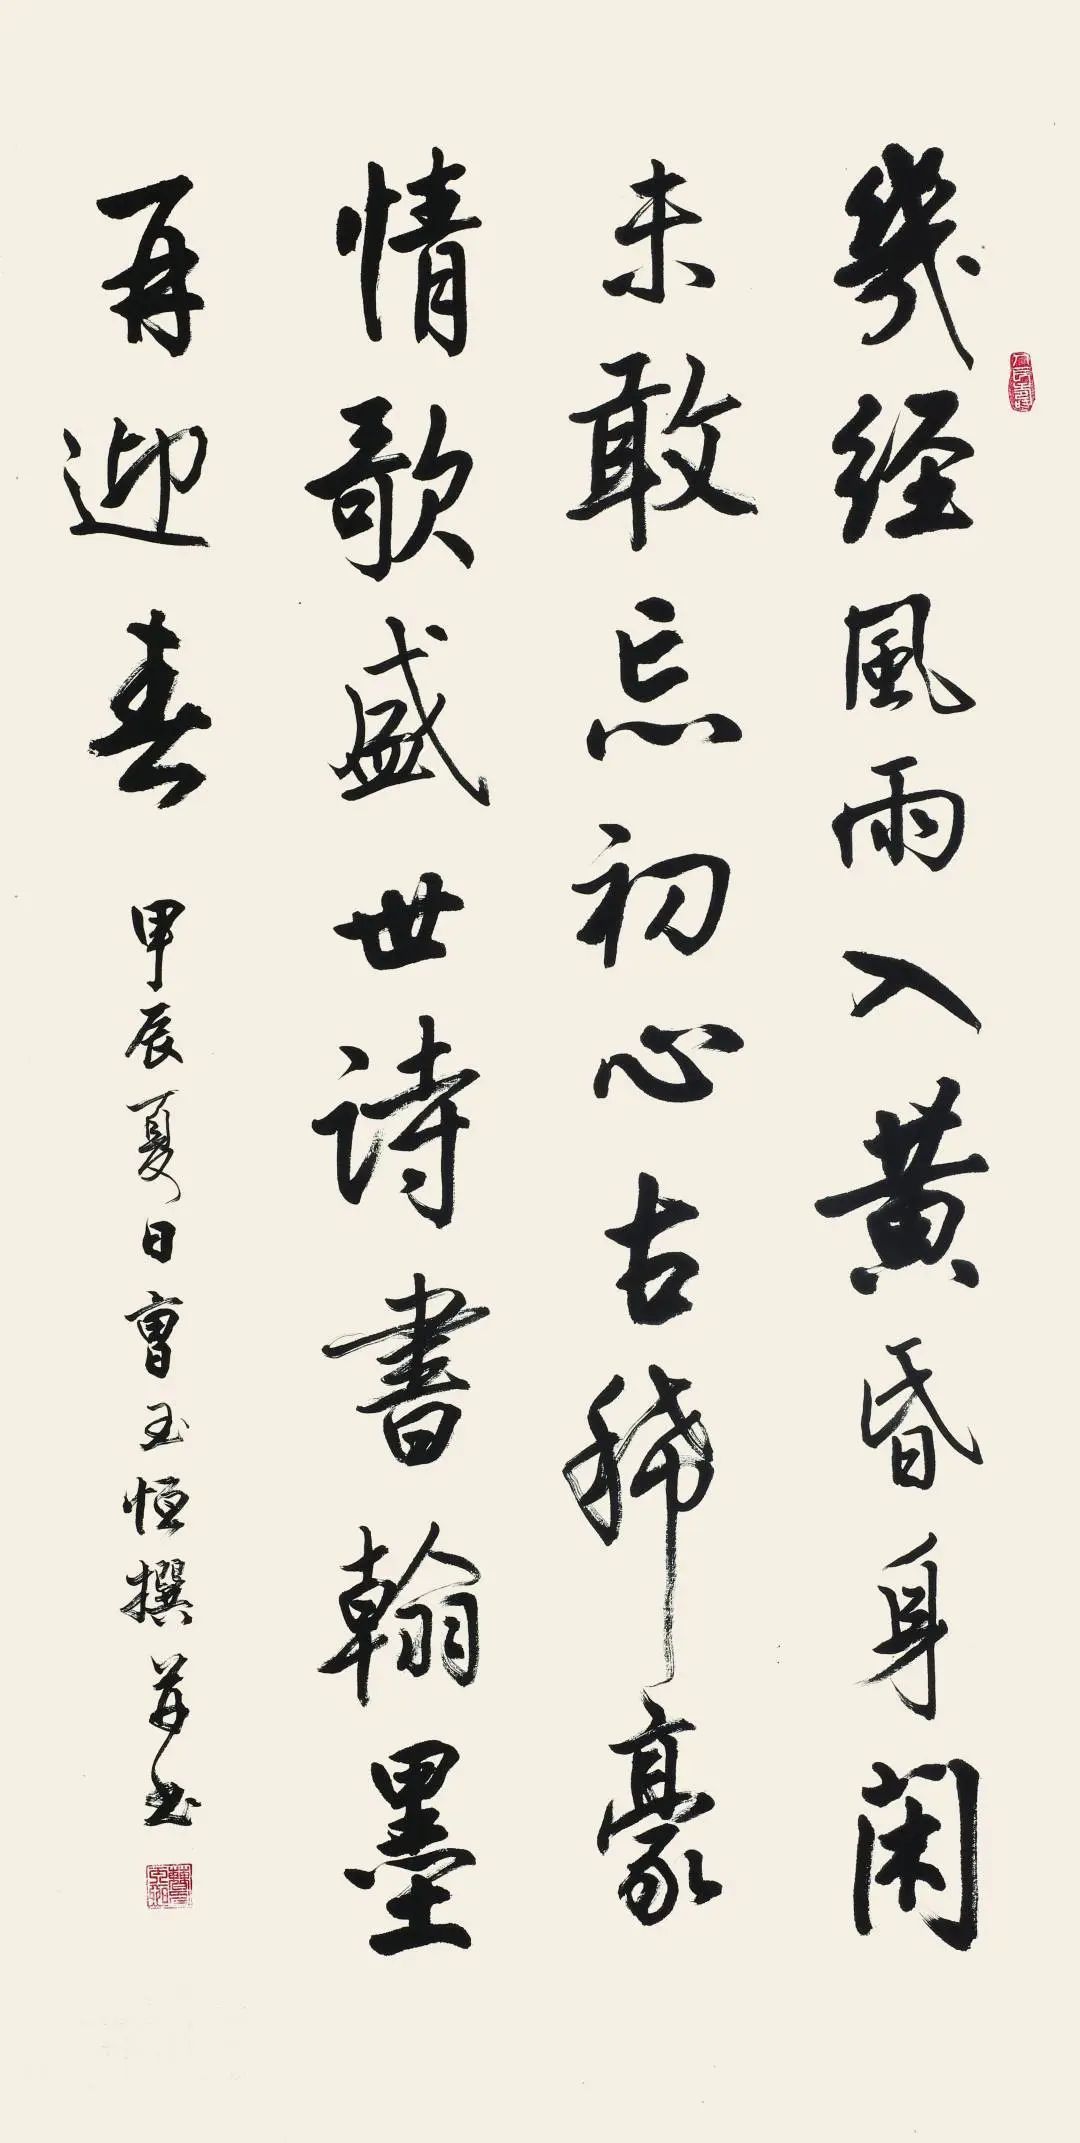 幾经風雨入黄昏身闲
未敢忘初心古稀豪
情歌盛世诗書翰墨
再迎春
甲辰夏日曹玉恒撰并书